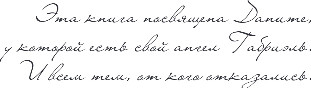 Эта книга посвящена Даните,
у которой есть свой ангел Габриэль.
И всем тем, от кого отказались.